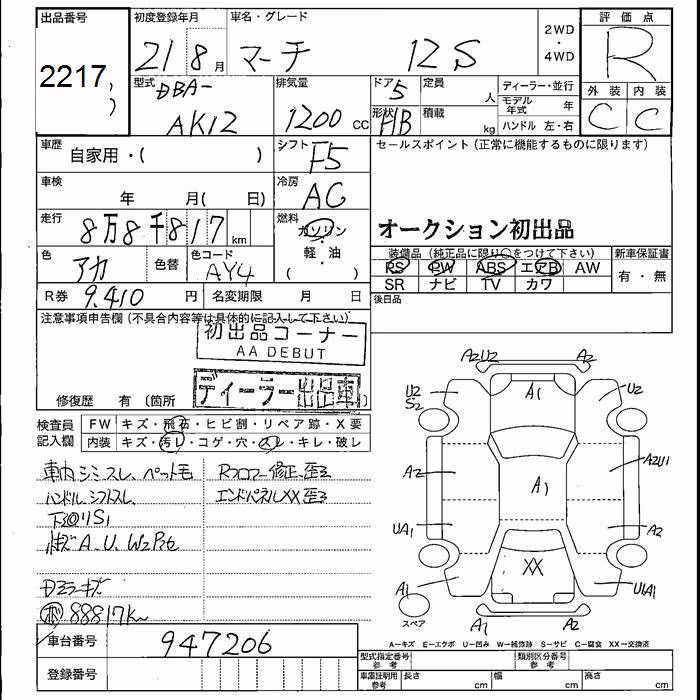 出品番号
2217
初度登録年月
21 8 月
車名・グレード
マーチ 12S
2WD
・
4WD
評価点
R
外装 内装
C C
型式
DBA-
AK12
排気量
1200 cc
ドア 5
形状 HB
定員 人
積載 kg
ディーラー・並行
モデル年式 年
ハンドル 左・右
車歴
自家用・( )
シフト
F5
車検
年 月( 日)
冷房
AC
走行
8万8千817 km
燃料
ガソリン
・
軽油
( )
色
アカ
色替
色コード
AY4
R券 9.410 円
名変期限 月 日
セールスポイント(正常に機能するものに限ります)
オークション初出品
装備品(純正品に限り○をつけて下さい)
PS PW ABS エアB AW
SR ナビ TV カワ
新車保証書
有・無
後日品
注意事項申告欄(不具合内容等は具体的に記入して下さい)
初出品コーナー
AA DEBUT
ディーラー出品車
修復歴 有(箇所 )
検査員記入欄
FW キズ・飛石・ヒビ割・リペア跡・X要
内装 キズ・汚レ・コゲ・穴・スレ・キレ・破レ
車内シミスレ、ペット毛
ハンドル、シフトスレ
下回りS1
Rフロアー修正、歪み
エンドパネルXX歪み
88817K
車台番号 947206
登録番号
A2U2 A2
U2
S2
A1
U2
A2
A1
A2U1
UA1
A2
XX
A1
U1A1
スペア
A1
A2
A−キズ E−エクボ U−凹み W−補修跡 S−サビ C−腐食 XX−交換済
型式指定番号
参考
類別区分番号
参考
車庫証明用
参考
長さ cm
幅 cm
高さ cm